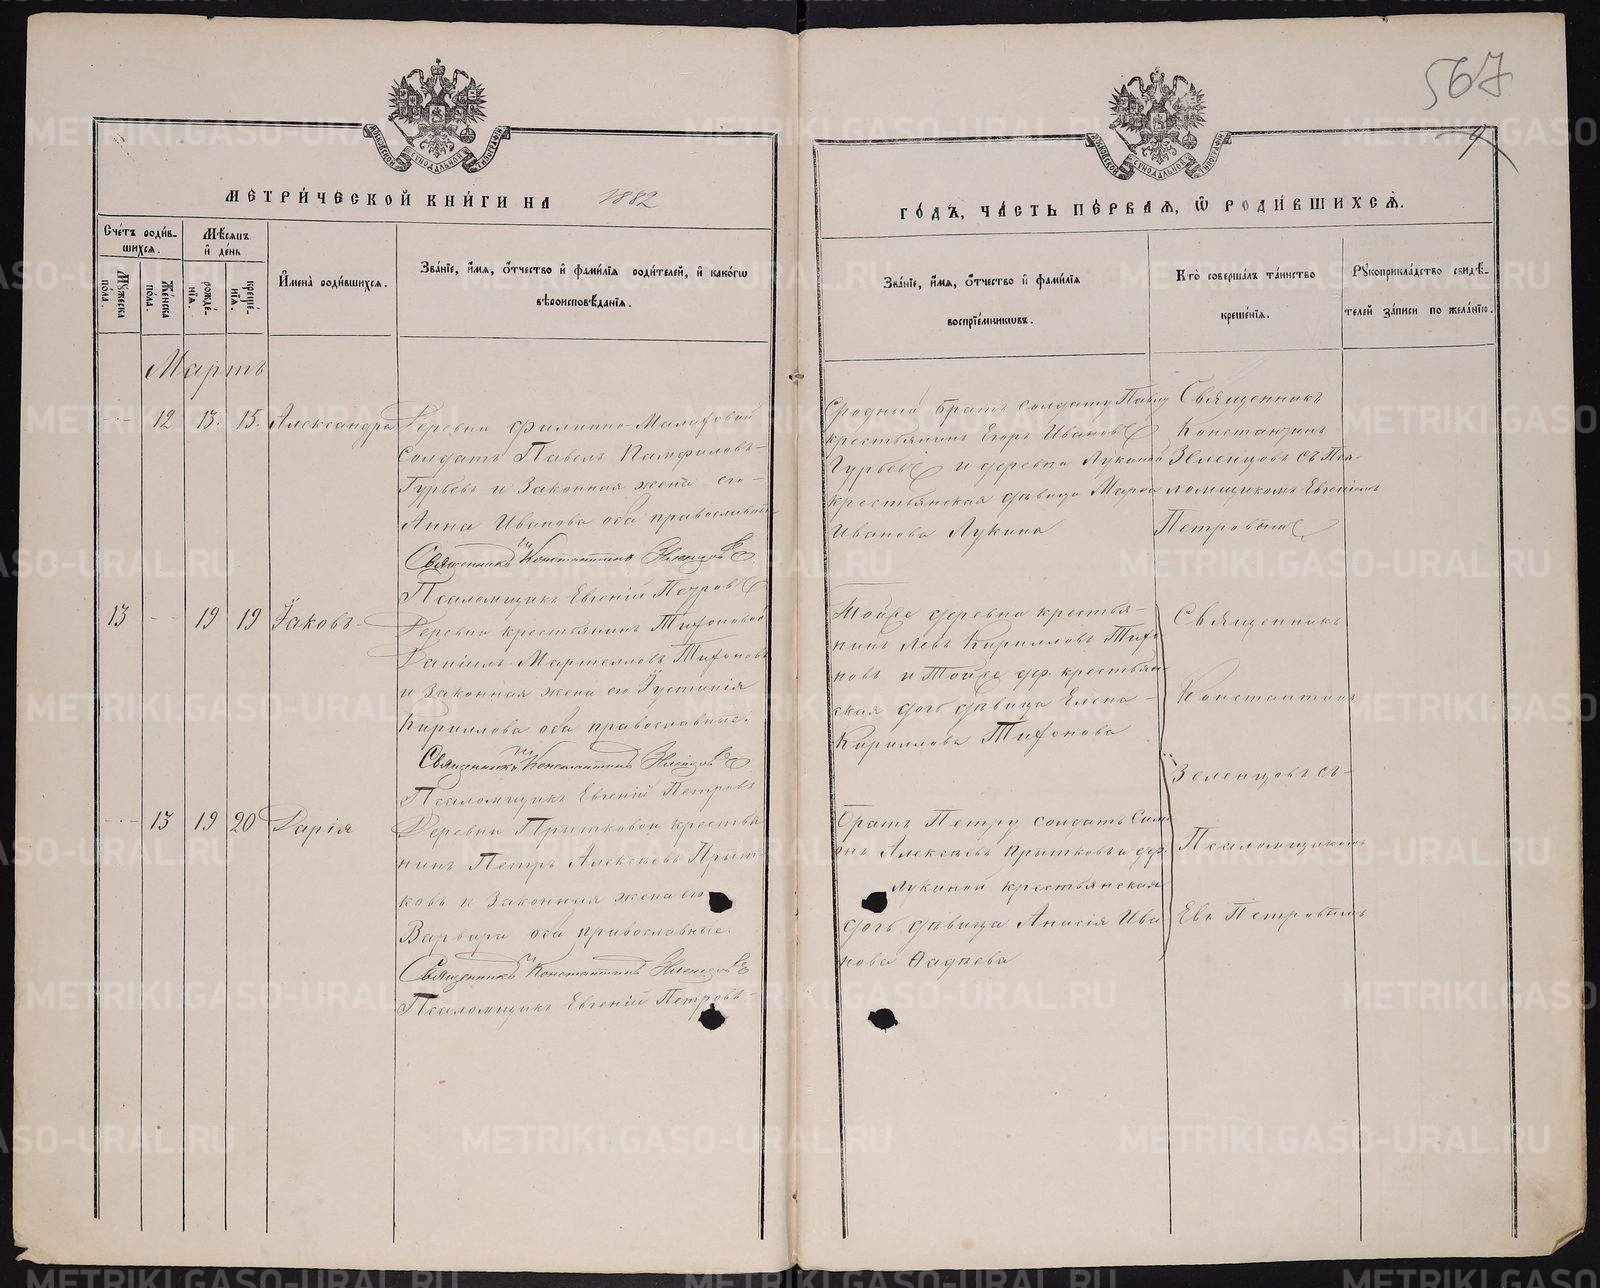 567
МЕТРИЧЕСКОЙ КНИГИ НА 1882
ГОДЪ, ЧАСТЬ ПЕРВАЯ, Ѡ РОДИВШИХСЯ.
Счетъ родившихся.
Мѣсяцъ и день
Мужеска пола.
Женска пола.
рожденія.
крещенія.
Имена родившихся.
Званіе, имя, отчество и фамилія родителей, и какогѡ
вѣроисповѣданія.
Званіе, имя, отчество и фамилія
воспріемниковъ.
Кто совершалъ таинство
крещенія.
Рукоприкладство свидѣ-
телей записи по желанію.
Мартъ
12 13. 15. Александра
Деревни Филиппо-Малафѣевой
Солдатъ Павелъ Памфиловъ
Гурьевъ и Законная жена его
Анна Иванова оба православные
Священникъ Константинъ Зеленцовъ
Псаломщикъ Евгеній Петровъ
Сродный братъ солдату Павлу
крестьянинъ Егоръ Ивановъ
Гурьевъ и деревни Лукиной
крестьянская дѣвица
Иванова Лукина
Священникъ
Константинъ
Зеленцовъ съ Пса-
ломщикомъ Евгеніемъ
Петровымъ
13 19 19 Іаковъ
Деревни крестьянинъ Тифоновой
Даніилъ Тифоновъ
и Законная жена его Іустинія
Кириллова оба православные.
Священникъ Константинъ Зеленцовъ
Псаломщикъ Евгеній Петровъ
Тойже деревни крестья-
нинъ Левъ Кирилловъ Тифо
новъ и Тойже дер. крестьян
ская дочь дѣвица Елена
Кириллова Тифонова
Священникъ
Константинъ
Зеленцовъ съ
Псаломщикомъ
Евг. Петровымъ
13 19 20 Дарія
Деревни Прытковой крестья
нинъ Петръ Алексѣевъ Прыт-
ковъ и Законная жена его
Варвара оба православные.
Священникъ Константинъ Зеленцовъ
Псаломщикъ Евгеній Петровъ
Братъ Петру солдатъ Сим
онъ Алексѣевъ Прытковъ и дер.
Лукиной крестьянская
дочь дѣвица Анисія Ива
нова Фадѣева
METRIKI.GASO-URAL.RU